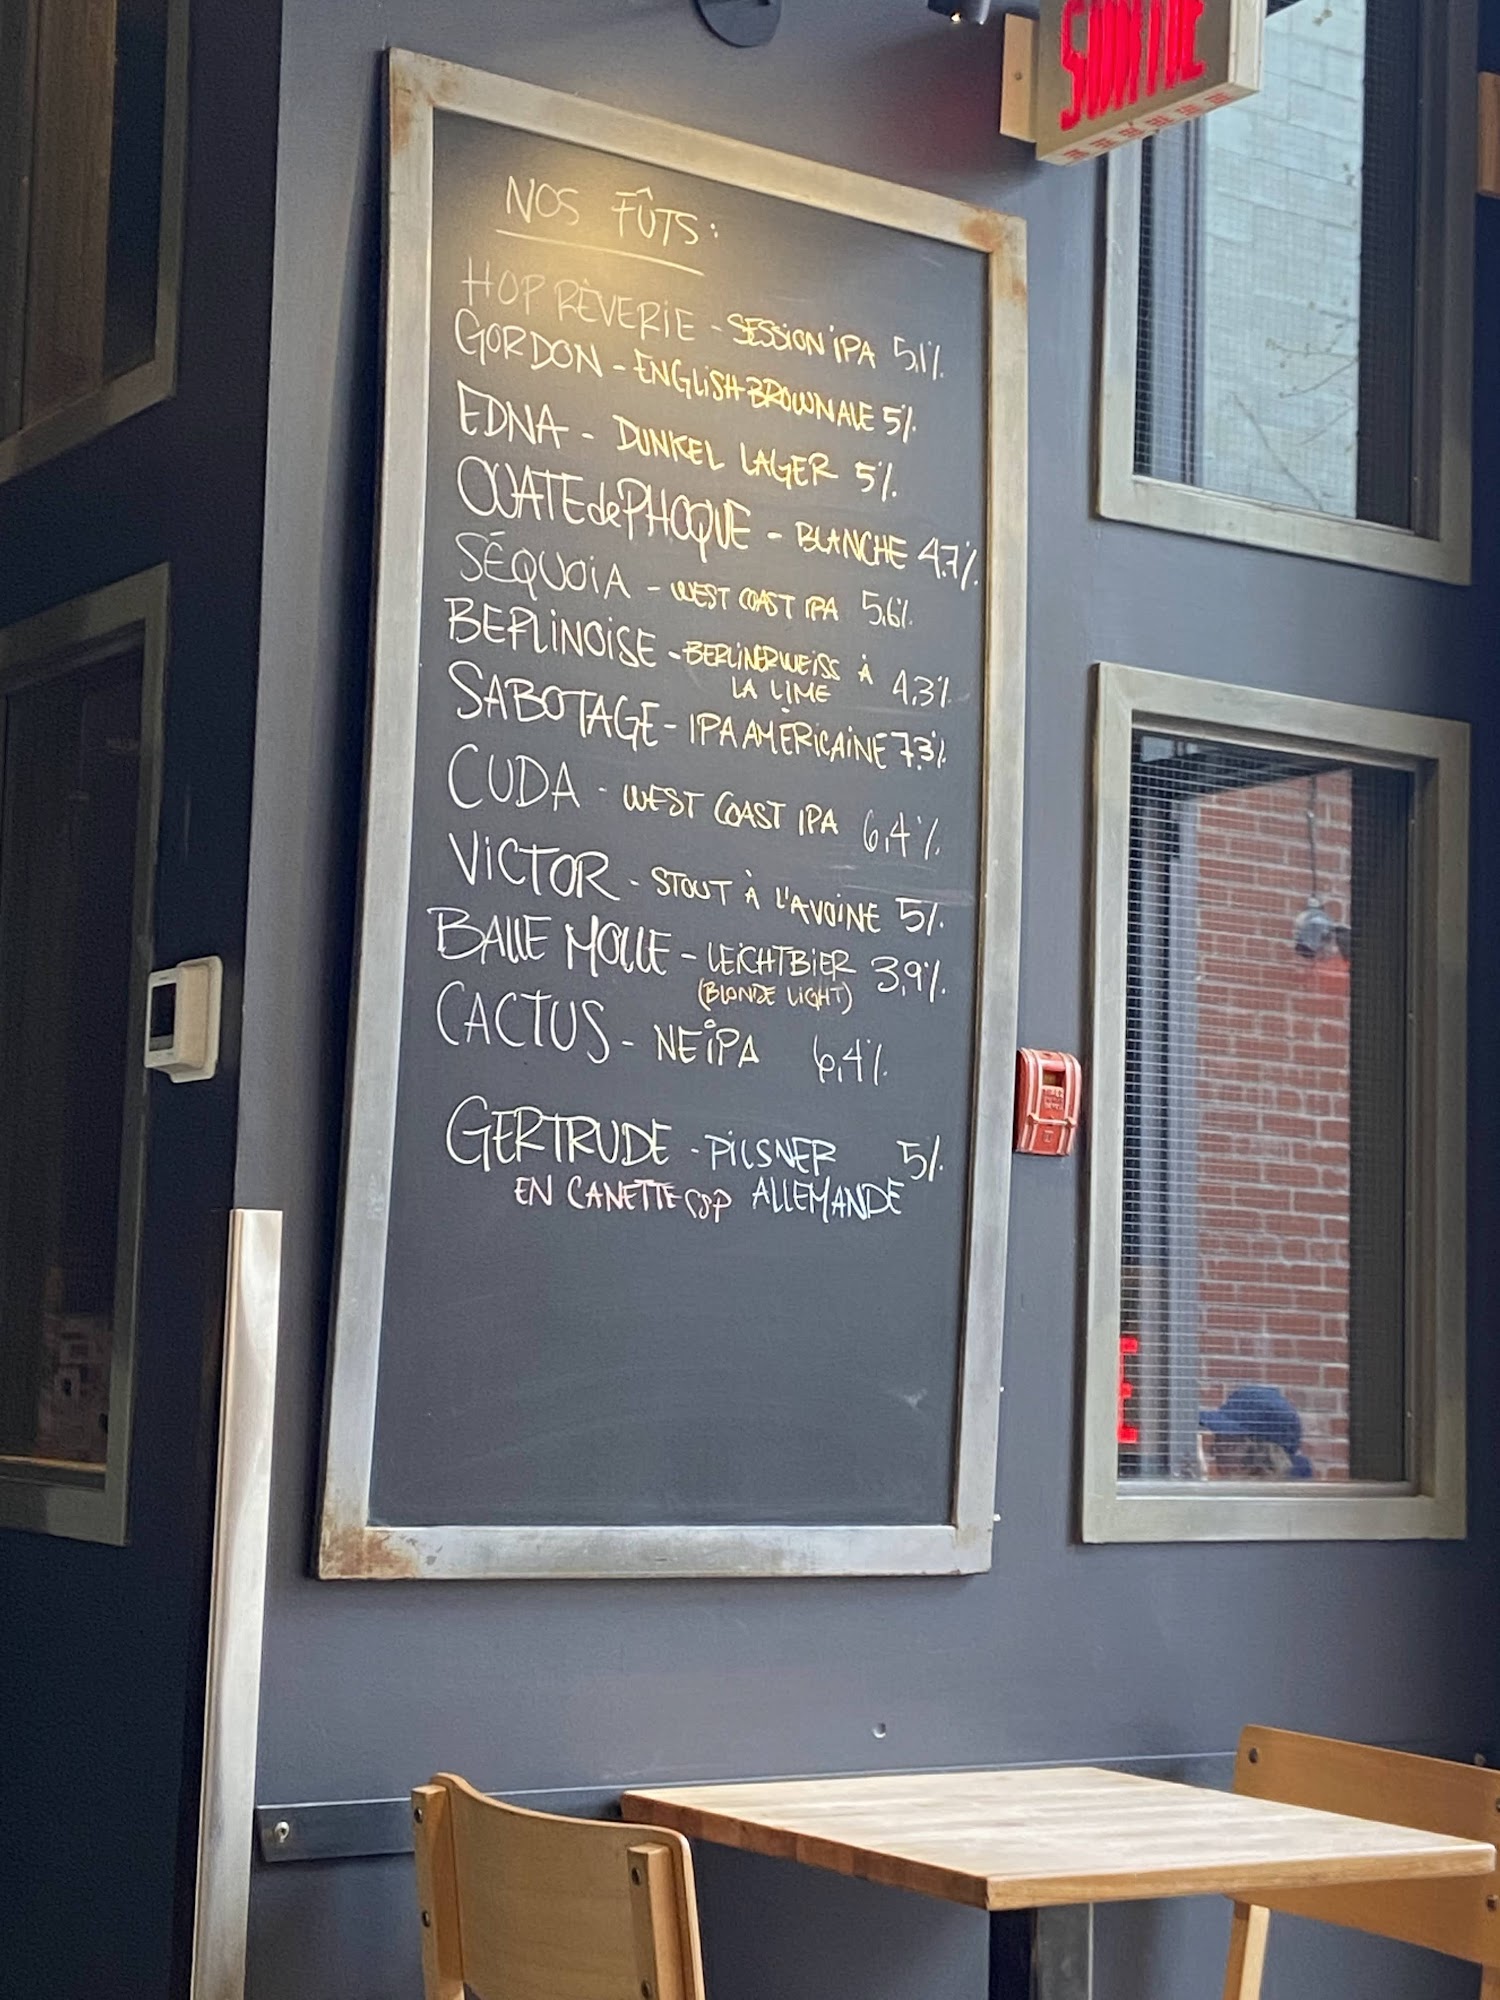 SORTIE
NOS FÛTS:
HOP RÊVERIE - SESSION IPA 5,1%
GORDON - ENGLISH BROWN ALE 5%
EDNA - DUNKEL LAGER 5%
OUATE de PHOQUE - BLANCHE 4.7%
SÉQUOIA - WEST COAST IPA 5,6%
BERLINOISE - BERLINERWEISS À 4,3%
LA LIME
SABOTAGE - IPA AMÉRICAINE 7.3%
CUDA - WEST COAST IPA 6,4%
VICTOR - STOUT À L'AVOINE 5%
BALLE MOLLE - LEICHTBIER 3,9%
(BLONDE LIGHT)
CACTUS - NEIPA 6,4%
GERTRUDE - PILSNER 5%
EN CANETTE CSP ALLEMANDE
E